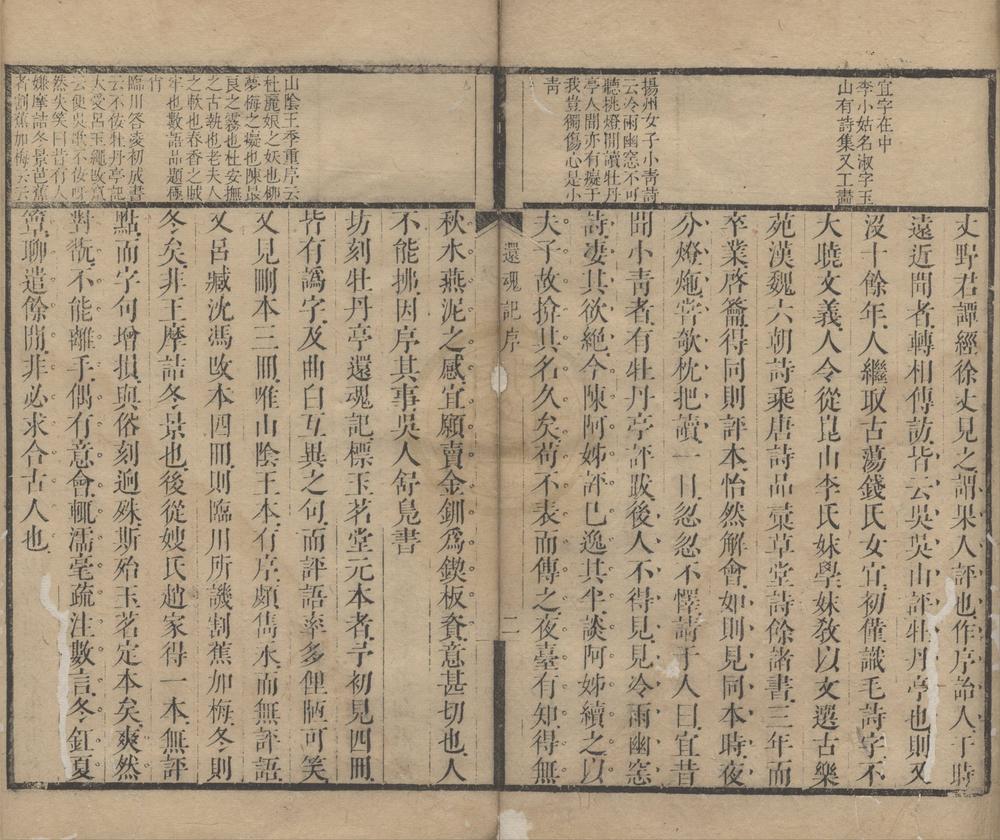 宜字在中
李小姑名淑字玉
山有詩集又工畫
揚州女子小青詩
云冷雨幽窓不可
聽挑燈閒讀牡丹
亭人間亦有癡于
我豈獨傷心是小
靑
丈野君譚經徐丈見之謂果人評也作序詒人于時
遠近聞者轉相傳訪皆云吳吳山評牡丹亭也則又
沒十餘年人繼取古蕩錢氏女宜初僅識毛詩字不
大曉文義人令從崑山李氏妹學妹敎以文選古樂
苑漢魏六朝詩乘唐詩品彚草堂詩餘諸書三年而
卒業啓籥得同則評本怡然解會如則見同本時夜
分燈炧嘗欹枕把讀一日忽忽不懌請于人曰宜昔
聞小靑者有牡丹亭評跋後人不得見見冷雨幽窓
詩凄其欲絕今陳阿姊評巳逸其半談阿姊續之以
夫子故揜其名久矣苟不表而傳之夜臺有知得無
還魂記序
二
山陰王季重序云
杜麗娘之妖也栁
夢梅之癡也陳最
良之霧也杜安撫
之古執也老夫人
之軟也春香之賊
牢也數語品題極
肖
臨川答凌初成書
云不佞牡丹亭記
大愛呂玉繩改竄
云便吳歌不佞啞
然失笑曰昔有人
嫌摩詰冬景芭蕉
者割蕉加梅云云
秋水燕泥之感宜願賣金釧爲鍥板資意甚切也人
不能拂因序其事吳人舒鳧書
坊刻牡丹亭還魂記標玉茗堂元本者予初見四冊
皆有譌字及曲白互異之句而評語率多俚陋可笑
又見刪本三冊唯山陰王本有序頗雋永而無評語
又呂臧沈馮改本四冊則臨川所譏割蕉加梅冬則
冬矣非王摩詰冬景也後從嫂氏趙家得一本無評
點而字句增損與俗刻迥殊斯殆玉茗定本矣爽然
對翫不能離手偶有意會輒濡毫疏注數言冬釭夏
簟聊遣餘閒非必求合古人也